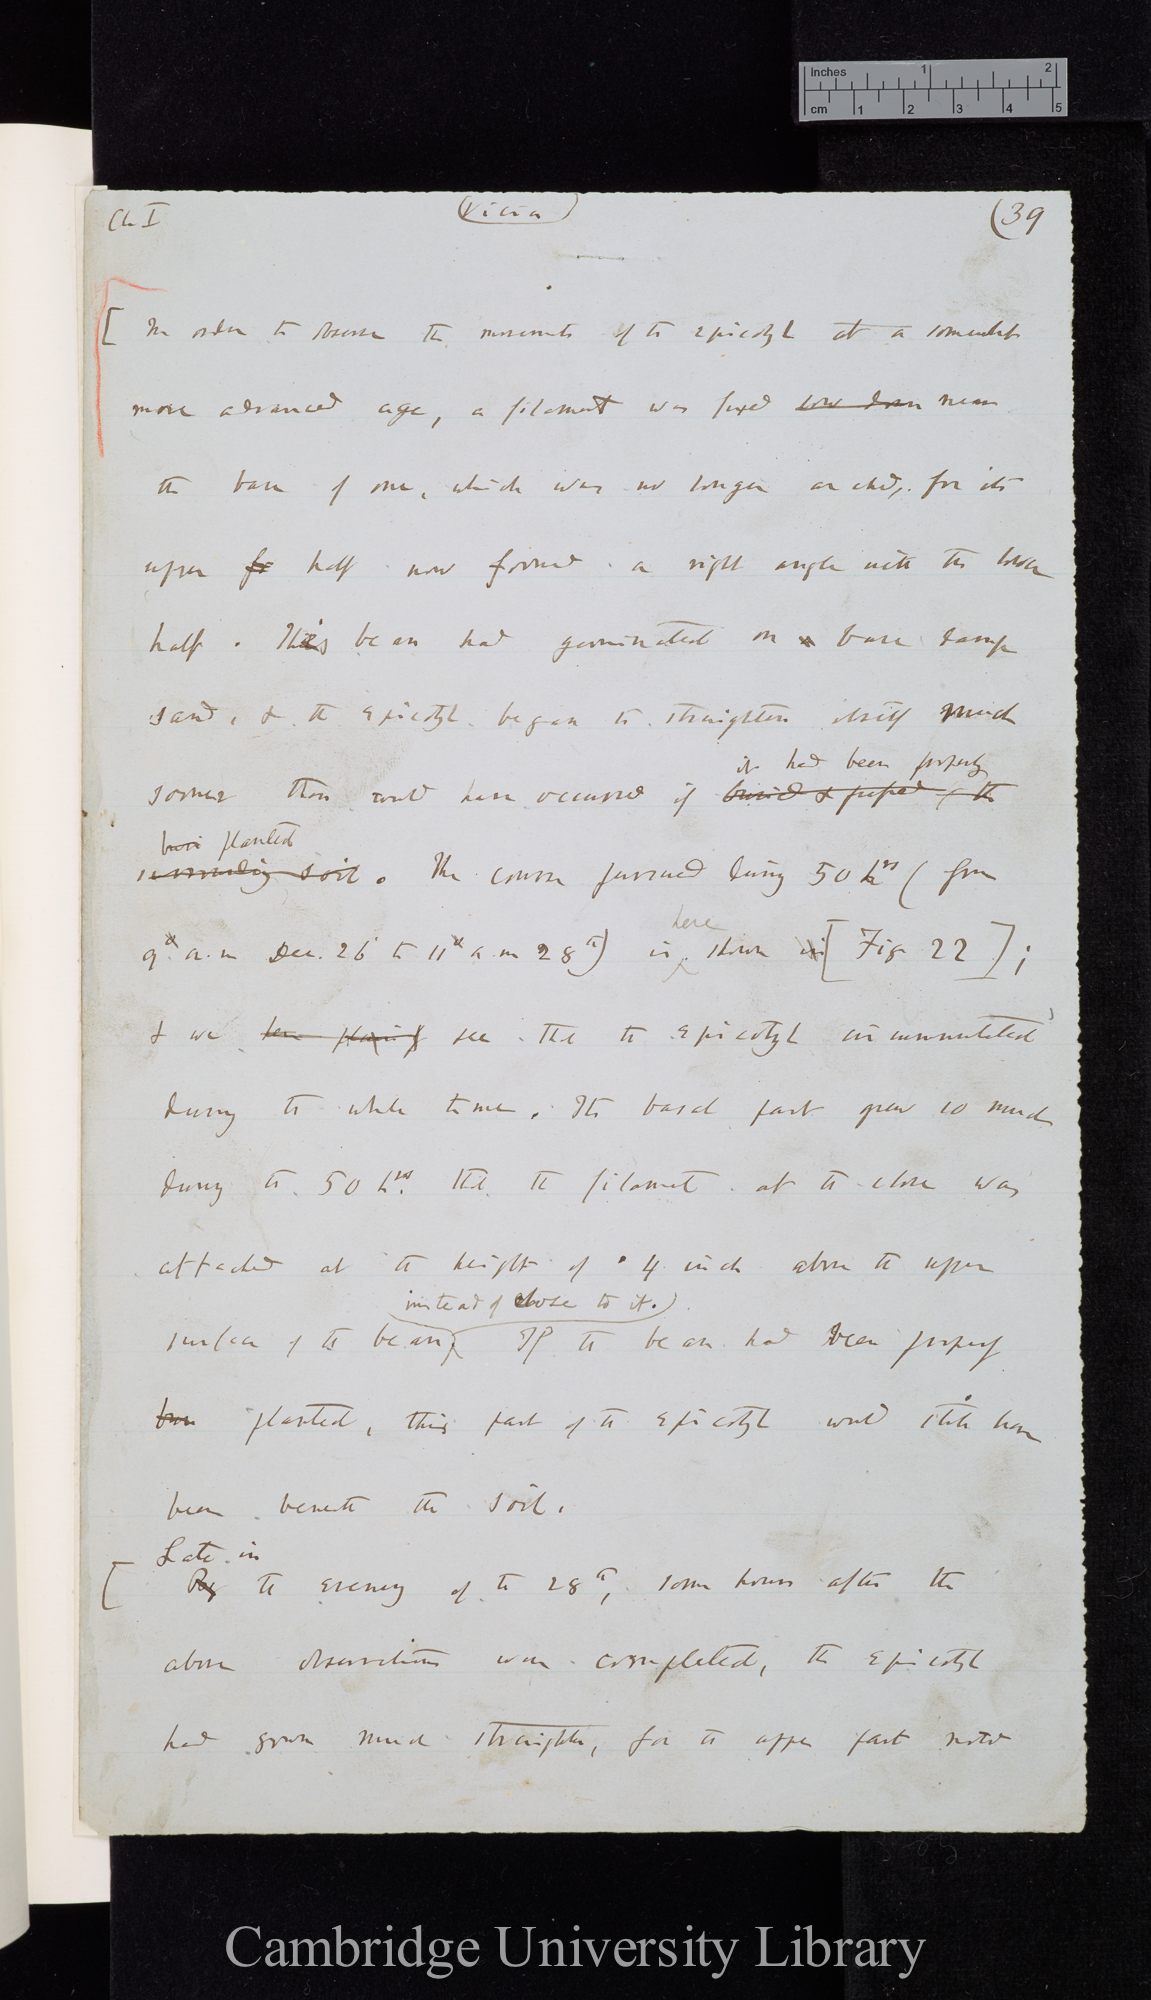 inches 1 2
cm 1 2 3 4 5
Ch I (Vicia) (39
[ In order to observe the movements of the epicotyl at a somewhat
more advanced age, a filament was fixed low down near
the base of one, which was no longer arched, for its
upper half now formed a right angle with the lower
half. This bean had germinated on bare damp
sand, & the epicotyl began to straighten itself much
it had been properly
sooner than would have occurred if buried & pressed by the
planted
surrounding soil. The course pursued during 50 hrs (from
here
9 a.m Dec. 26 to 11 a.m 28th) is shown in [Fig 22];
& we see that the epicotyl circumnutated
during the whole time. Its basal part grew so much
during the 50 hrs. that the filament at the close was
attached at the height of .4 inch above the upper
instead of close to it.)
surface of the bean, If the bean had been properly
planted, this part of the epicotyl would still have
been beneath the soil.
Late in
[ By the evening of the 28th, some hours after the
above observations were completed, the epicotyl
had grown much straighter, for the upper part now
Cambridge University Library